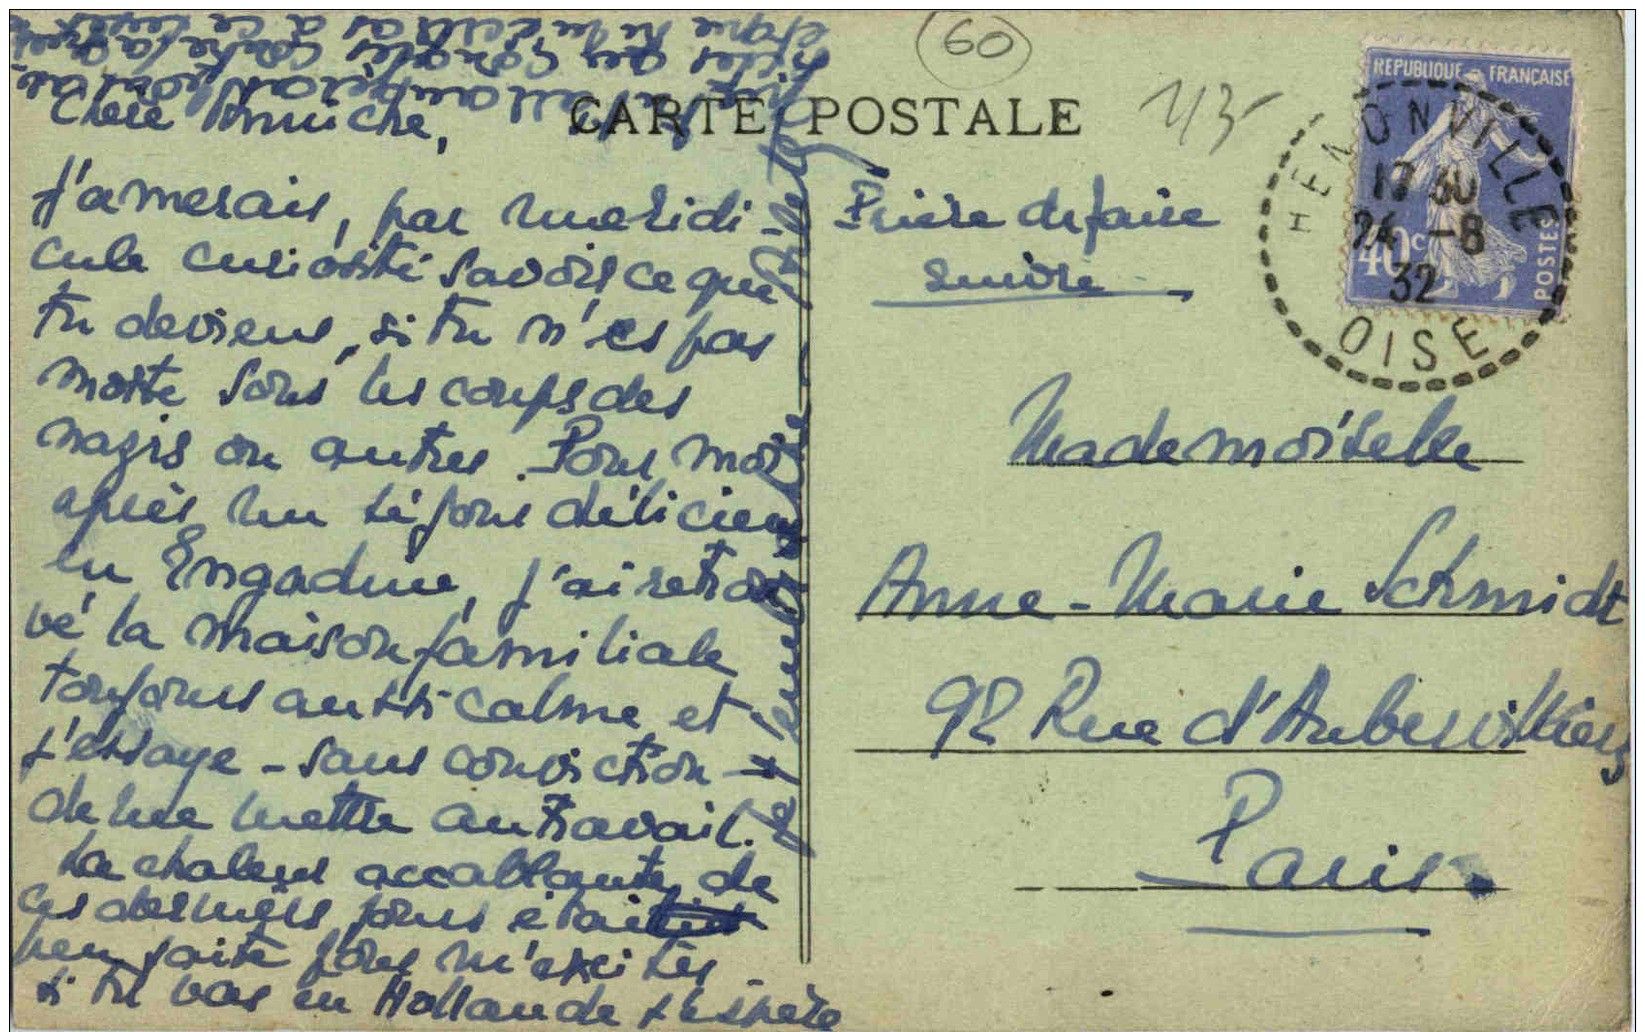 60
CARTE POSTALE
REPUBLIQUE FRANÇAISE
POSTES
40c
HENONVILLE
17 30
24 -8
32
OISE
Chère Anniche,
J'amerais, par une ridi-
cule curiosité savoir ce que
tu deviens, si tu n'es pas
morte sous les coups des
nazis ou autres. Pour moi
après un séjour délicieux
en Engadine, j'ai retrou
vé la maison familiale
toujours aussi calme et
j'essaye - sans conviction -
de me mettre au travail.
La chaleur accablante de
ces derniers jours était
peu faite pour m'exciter.
si tu vas en Hollande j'espère
Prière de faire
suivre
Mademoiselle
Anne-Marie Schmidt
92 Rue d'Aubervilliers
Paris